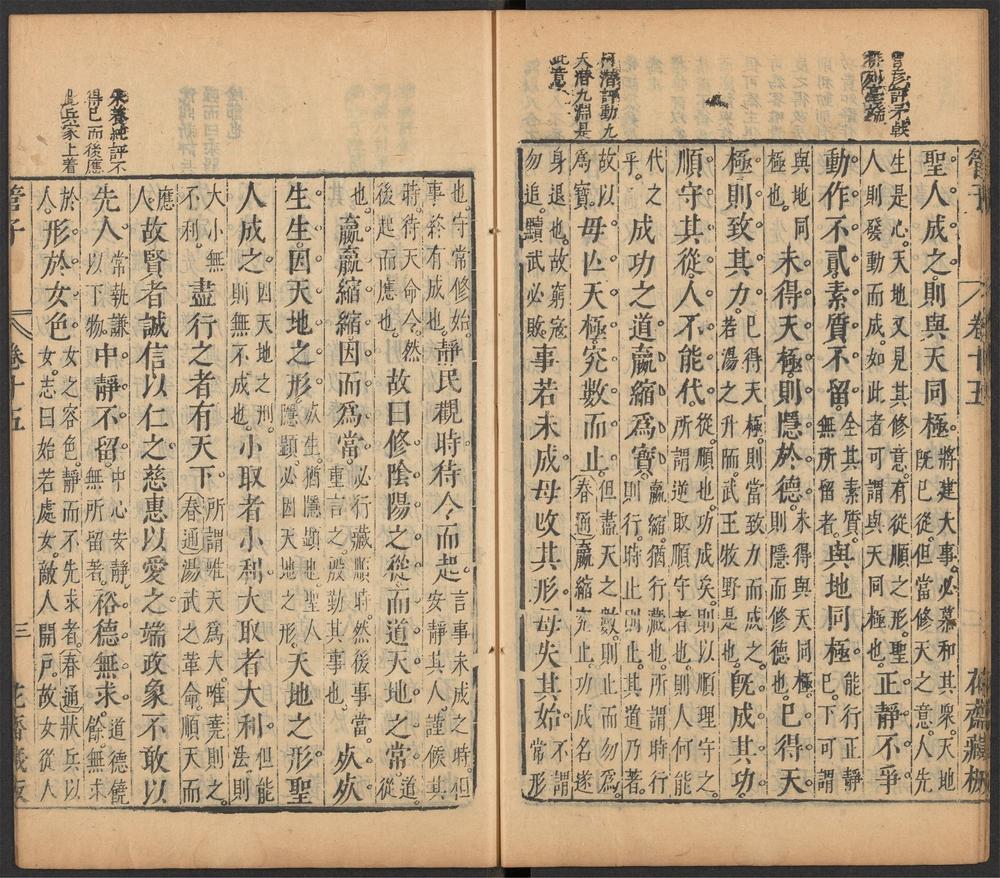 柯潛評動九
天潛九淵是
此意
管子　卷十五　花齋藏板
聖人成之則與天同極。將建大事。必慕和其眾。天地
既已從。但當修天之意。人先
生是心。天地又見其修意。有從順之形。聖
人則發動而成。如此者可謂與天同極也。正靜不爭
動作不貳。素質不留。全其素質。
無所留者。與地同極。能行正靜
已下可謂
與地同
極也。未得天極。則隱於德。未得與天同極。
則隱而修德也。已得天
極。則致其力。已得天極。則當致力而成之。
若湯之升陑而武王牧野是也。既成其功。
順守其從。人不能代。從順也。功成矣。則以順理守之。
所謂逆取順守者也。則人何能
代之
乎。成功之道。嬴縮爲寶。嬴縮。猶行藏也。所謂時行
則行。時止則止。其道乃著。
故以
爲寶。毋亡天極。究數而止。但盡天之數。則止而勿爲。
春通嬴縮究止。功成名遂
身退也。故窮寇
勿追。黷武必敗。事若未成。毋攺其形。毋失其始。不謂
常形
也。守常修始。
事終有成也。靜民觀時。待令而起。言事未成之時。但
安靜其人。謹候其
時。待天命令。然
後起而應也。故曰修陰陽之從。而道天地之常。道
從
也。嬴嬴縮縮。因而爲當。必行藏順時。然後事當。
重言之。殷勤其事也。死死
生生。因天地之形。死生。猶隱顯也。聖人
隱顯。必因天地之形。天地之形。聖
人成之。因天地之刑。
則無不成也。小取者小利。大取者大利。但能
法則
大小無
不利。盡行之者有天下。所謂唯天爲大。唯堯則之。
春通湯武之革命。順天而
應
人。故賢者誠信以仁之。慈惠以愛之。端政象不敢以
先人。常執謙
以下物。中靜不留。中心安靜。
無所留著。裕德無求。道德饒
餘。無求
於
人。形於女色。女之容色。靜而不先求者。春通狀兵以
女。志曰始若處女。敵人開戸。故女從人
管子　卷十五　三　花齋藏板
朱養純評不
得已而後應
此兵家上着